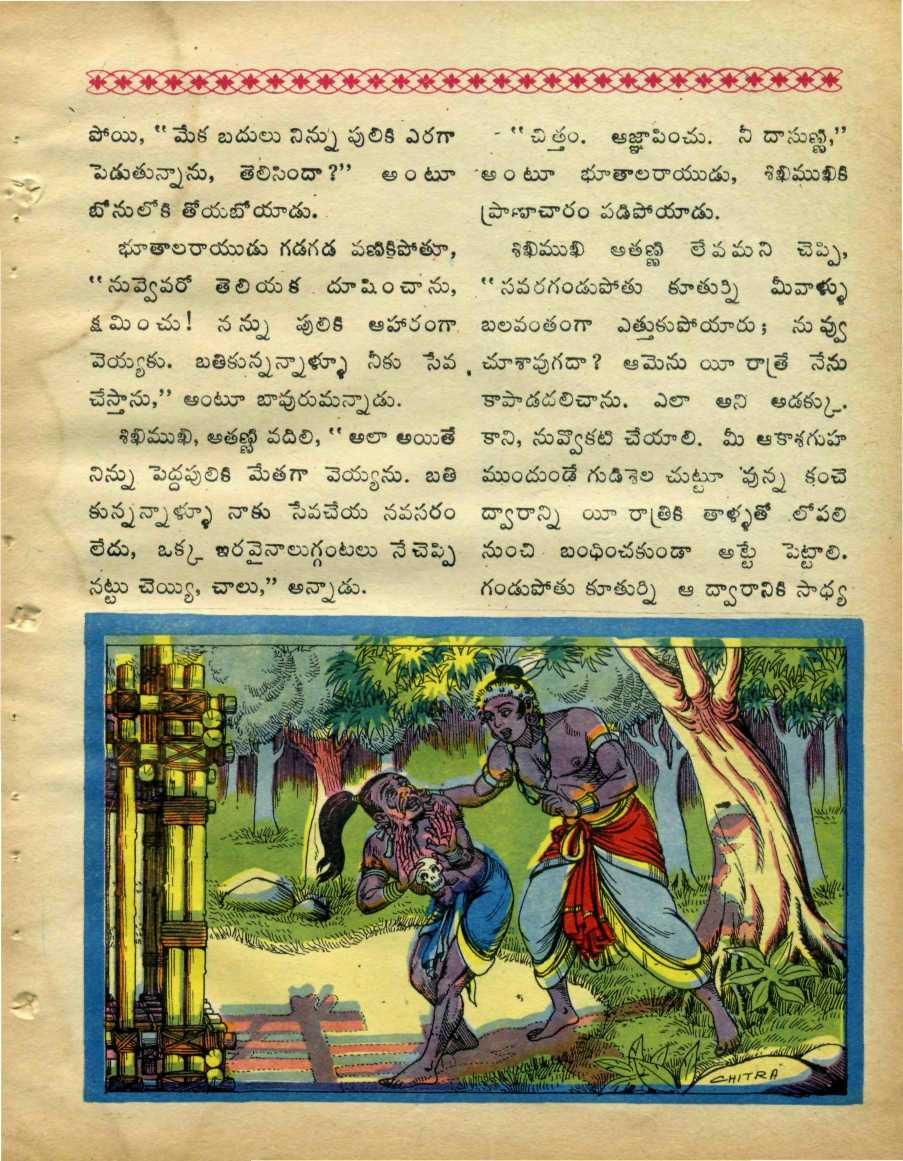 పోయి, “మేక బదులు నిన్ను పులికి ఎరగా
పెడుతున్నాను, తెలిసిందా?” అంటూ
బోనులోకి తోయబోయాడు.
భూతాలరాయుడు గడగడ వణికిపోతూ,
“నువ్వెవరో తెలియక దూషించాను,
క్షమించు! నన్ను పులికి ఆహారంగా
వెయ్యకు. బతికున్నన్నాళ్ళూ నీకు సేవ
చేస్తాను,” అంటూ బావురుమన్నాడు.
శిఖిముఖి, అతణ్ణి వదిలి, “అలా అయితే
నిన్ను పెద్దపులికి మేతగా వెయ్యను. బతి
కున్నన్నాళ్ళూ నాకు సేవచేయ నవసరం
లేదు, ఒక్క ఇరవైనాలుగ్గంటలు నే చెప్పి
నట్టు చెయ్యి, చాలు,” అన్నాడు.
“చిత్తం. ఆజ్ఞాపించు. నీ దాసుణ్ణి,”
అంటూ భూతాలరాయుడు, శిఖిముఖికి
ప్రాణాచారం పడిపోయాడు.
శిఖిముఖి అతణ్ణి లేవమని చెప్పి,
“సవరగండుపోతు కూతుర్ని మీవాళ్ళు
బలవంతంగా ఎత్తుకుపోయారు; నువ్వు
చూశావుగదా? ఆమెను యీ రాత్రే నేను
కాపాడదలిచాను. ఎలా అని అడక్కు.
కాని, నువ్వొకటి చేయాలి. మీ ఆకాశగుహ
ముందుండే గుడిశెల చుట్టూ వున్న కంచె
ద్వారాన్ని యీ రాత్రికి తాళ్ళతో లోపలి
నుంచి బంధించకుండా అట్టే పెట్టాలి.
గండుపోతు కూతుర్ని ఆ ద్వారానికి సాధ్య
CHITRA